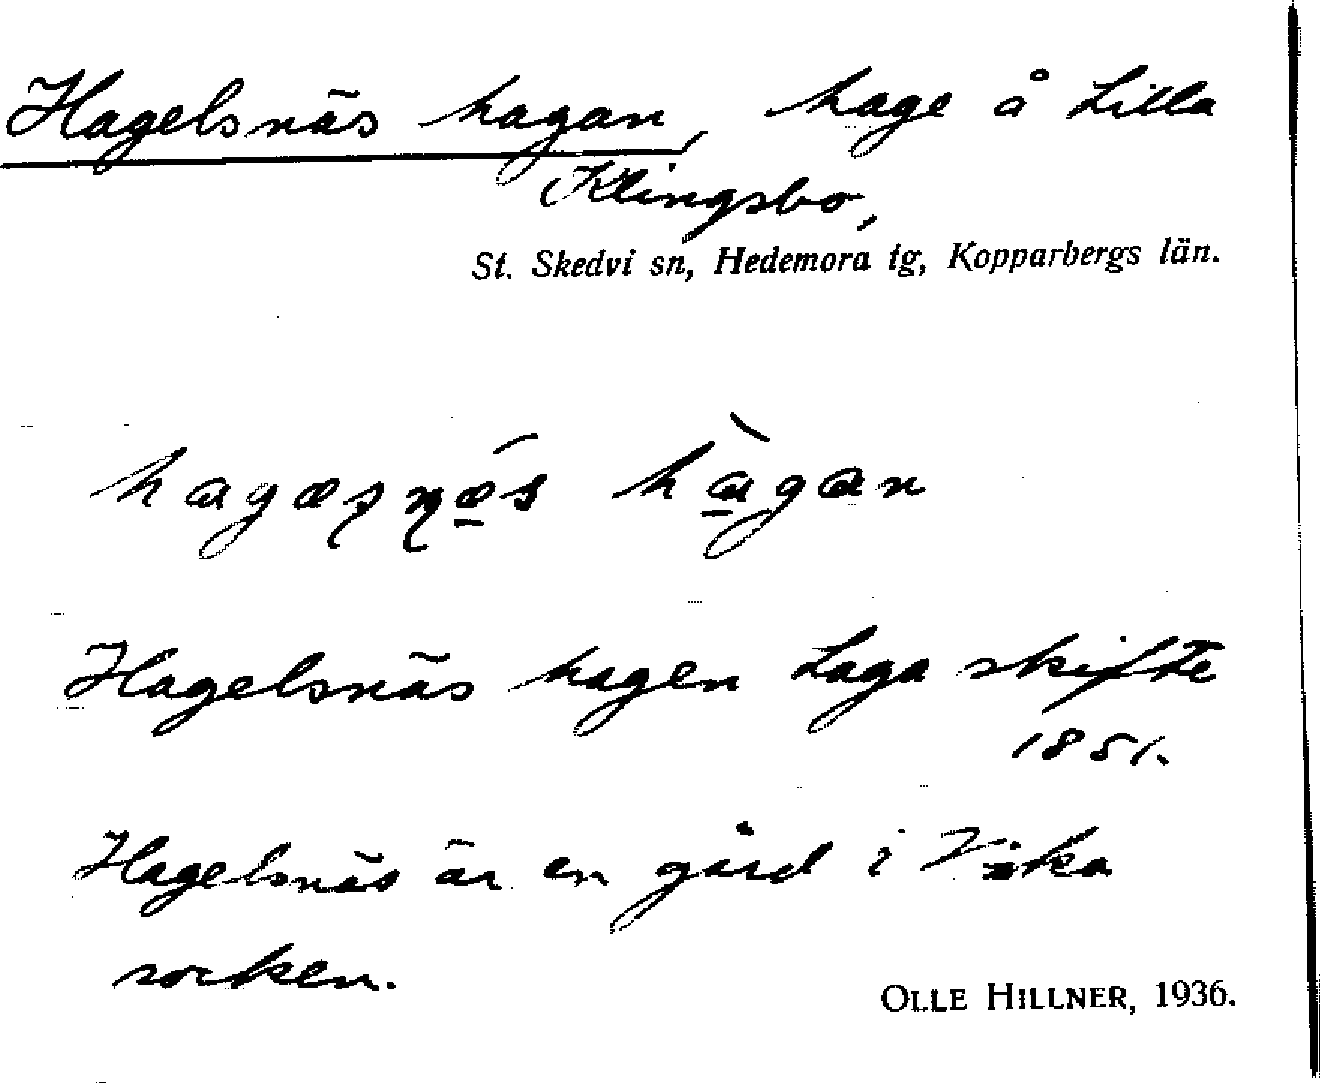 Hagelsnäs hagan, hage å Lilla
Klingsbo,
St. Skedvi sn, Hedemora tg, Kopparbergs län.
hagæʂɳǽs hàgan
Hagelsnäs hagen Laga skifte
1851.
Hagelsnäs är en gård i Vika
socken.
OLLE HILLNER, 1936.